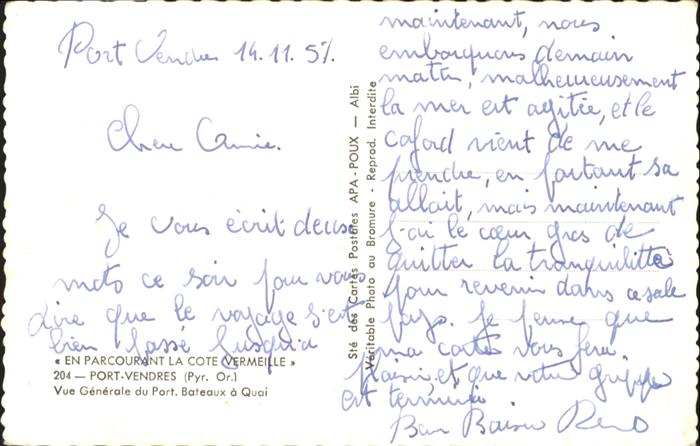 Port Vendres 14.11.57.
Chere Annie.
Je vous écrit deux
mots ce soir pour vous
dire que le voyage s'est
bien passé jusqu'a
maintenant, nous
embarquons demain
matin, malheureusement
la mer est agitée, et le
cafard vient de me
prendre, en partant sa
allait, mais maintenant
j'ai le cœur gros de
quitter la tranquilitte
pour revenir dans ce sale
pays. Je pense que
ma carte vous fera
plaisir, et que votre grippe
est terminé.
Bon Baiser René
« EN PARCOURANT LA COTE VERMEILLE »
204 — PORT-VENDRES (Pyr. Or.)
Vue Générale du Port. Bateaux à Quai
Sté des Cartes Postales APA-POUX — Albi
Véritable Photo au Bromure - Reprod. Interdite